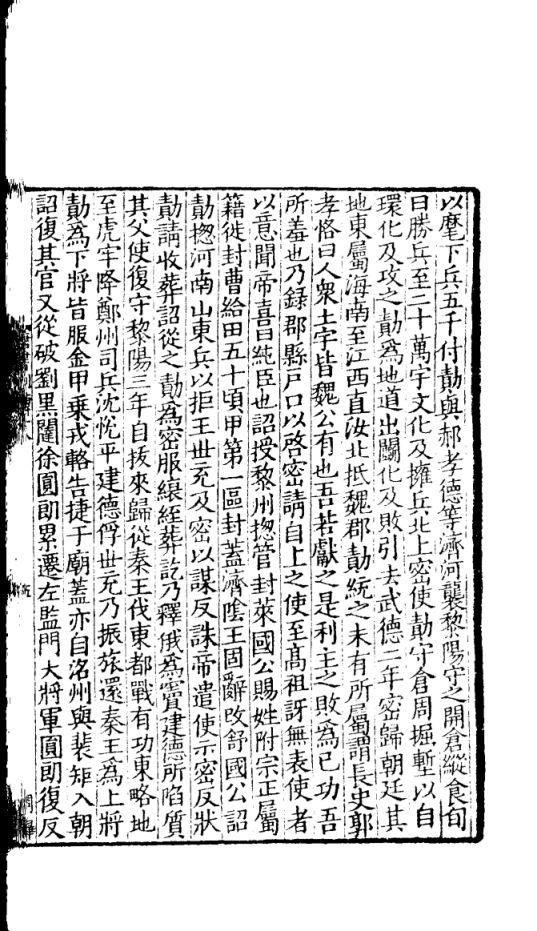 以麾下兵五千付勣與郝孝德等濟河襲黎陽守之開倉縱食旬
日勝兵至二十萬宇文化及擁兵北上密使勣守倉周掘塹以自
環化及攻之勣為地道出鬬化及敗引去武德二年密歸朝廷其
地東屬海南至江西直汝北抵魏郡勣統之未有所屬謂長史郭
孝恪曰人衆土宇皆魏公有也吾若獻之是利主之敗為已功吾
所羞也乃錄郡縣戶口以啓密請自上之使至高祖訝無表使者
以意聞帝喜曰純臣也詔授黎州揔管封萊國公賜姓附宗正屬
籍徙封曹給田五十頃甲第一區封蓋濟陰王固辭改舒國公詔
勣揔河南山東兵以拒王世充及密以謀反誅帝遣使示密反狀
勣請收葬詔從之勣為密服縗絰葬訖乃釋俄為竇建德所陷質
其父使復守黎陽三年自拔來歸從秦王伐東都戰有功東略地
至虎牢降鄭州司兵沈恱平建德俘世充乃振旅還秦王為上將
勣為下將皆服金甲乗戎輅告捷于廟蓋亦自洺州與裴矩入朝
詔復其官又從破劉黑闥徐圓朗累遷左監門大將軍圓朗復反